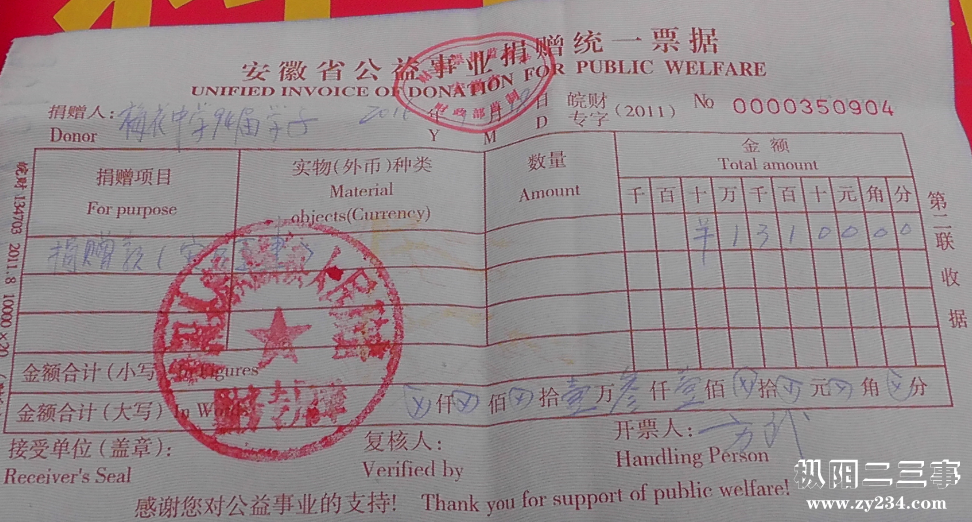 安徽省公益事业捐赠统一票据
UNIFIED INVOICE OF DONATION FOR PUBLIC WELFARE
捐赠人: 中学94届学子 201 年 月 日 皖财专字(2011) No 0000350904
Donor Y M D
捐赠项目 实物(外币)种类 数量 金额
For purpose Material objects(Currency) Amount Total amount
千 百 十 万 千 百 十 元 角 分
捐赠款( ¥ 1 3 1 0 0 0 0
金额合计(小写) In Figures
金额合计(大写) In Words ⊗仟⊗佰⊗拾壹万叁仟壹佰⊗拾⊗元⊗角⊗分
接受单位(盖章): 复核人: 开票人:
Receiver's Seal Verified by Handling Person
感谢您对公益事业的支持! Thank you for support of public welfare!
第二联 收据
皖财 134703 2011.8 10000×20
财政部监制
人民政府
枞阳二三事
www.zy234.com